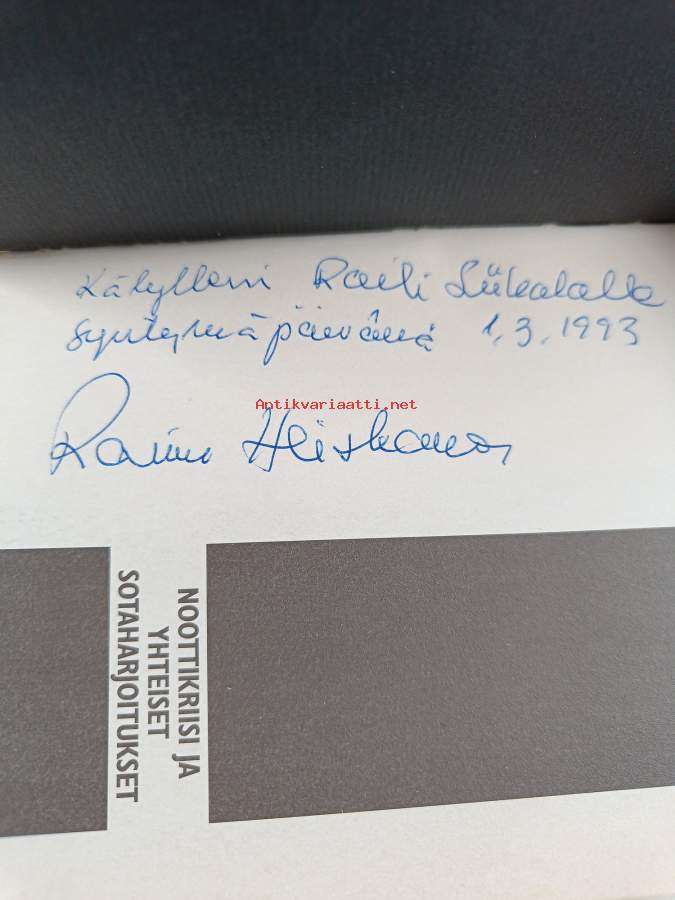 Kälylleni Raili Siikalalle
syntymäpäivänä 1.3.1993
Antikvariaatti.net
Raimo Heiskanen
NOOTTIKRIISI JA
YHTEISET
SOTAHARJOITUKSET